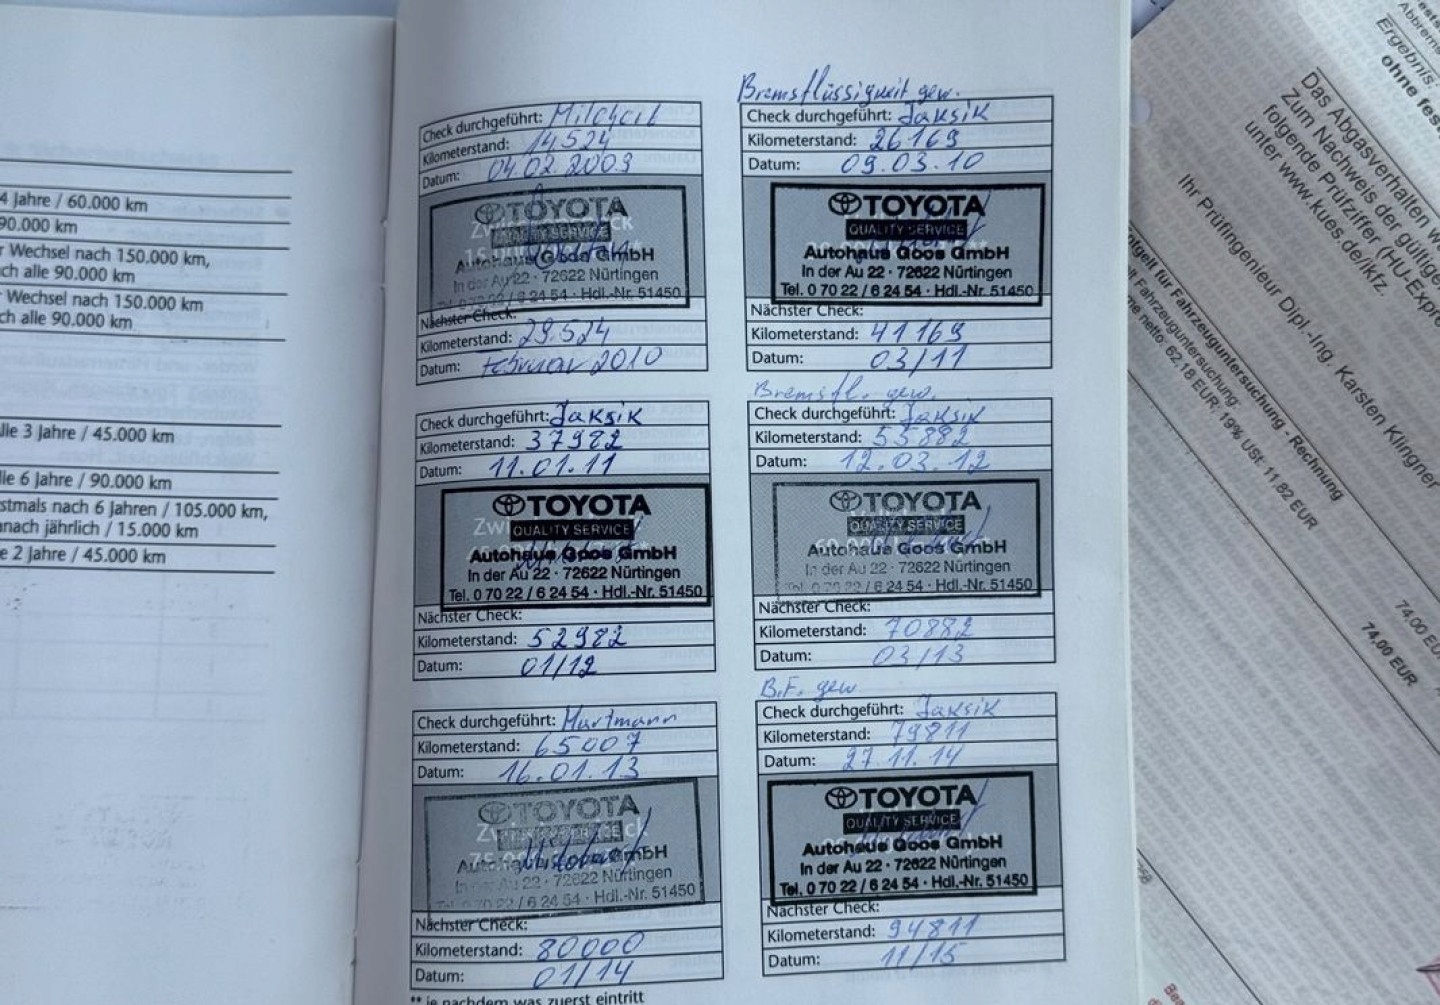 4 Jahre / 60.000 km
90.000 km
r Wechsel nach 150.000 km,
ch alle 90.000 km
r Wechsel nach 150.000 km
ch alle 90.000 km
lle 3 Jahre / 45.000 km
lle 6 Jahre / 90.000 km
stmals nach 6 Jahren / 105.000 km,
nach jährlich / 15.000 km
e 2 Jahre / 45.000 km
Check durchgeführt:
Kilometerstand: 14524
Datum: 04.02.2009
TOYOTA
QUALITY SERVICE
Autohaus Goos GmbH
In der Au 22 · 72622 Nürtingen
Tel. 0 70 22 / 6 24 54 · Hdl.-Nr. 51450
Nächster Check:
Kilometerstand: 29.524
Datum: Februar 2010
Bremsflüssigkeit gew.
Check durchgeführt: Jaksik
Kilometerstand: 26169
Datum: 09.03.10
TOYOTA
QUALITY SERVICE
Autohaus Goos GmbH
In der Au 22 · 72622 Nürtingen
Tel. 0 70 22 / 6 24 54 · Hdl.-Nr. 51450
Nächster Check:
Kilometerstand: 41169
Datum: 03/11
Check durchgeführt: Jaksik
Kilometerstand: 37982
Datum: 11.01.11
TOYOTA
QUALITY SERVICE
Autohaus Goos GmbH
In der Au 22 · 72622 Nürtingen
Tel. 0 70 22 / 6 24 54 · Hdl.-Nr. 51450
Nächster Check:
Kilometerstand: 52982
Datum: 01/12
Bremsfl. gew.
Check durchgeführt: Jaksik
Kilometerstand: 55882
Datum: 12.03.12
TOYOTA
QUALITY SERVICE
Autohaus Goos GmbH
In der Au 22 · 72622 Nürtingen
Tel. 0 70 22 / 6 24 54 · Hdl.-Nr. 51450
Nächster Check:
Kilometerstand: 70882
Datum: 03/13
Check durchgeführt: Hartmann
Kilometerstand: 65007
Datum: 16.01.13
TOYOTA
Autohaus Goos GmbH
In der Au 22 · 72622 Nürtingen
Tel. 0 70 22 / 6 24 54 · Hdl.-Nr. 51450
Nächster Check:
Kilometerstand: 80000
Datum: 01/14
** je nachdem was zuerst eintritt
B.F. gew
Check durchgeführt: Jaksik
Kilometerstand: 79811
Datum: 27.11.14
TOYOTA
QUALITY SERVICE
Autohaus Goos GmbH
In der Au 22 · 72622 Nürtingen
Tel. 0 70 22 / 6 24 54 · Hdl.-Nr. 51450
Nächster Check:
Kilometerstand: 94811
Datum: 11/15
Abbrems
Ergebnis
ohne fest
Das Abgasverhalten
Zum Nachweis der gültige
folgende Prüfziffer (HU-Expr
unter www.kues.de/kfz.
Ihr Prüfingenieur Dipl.-Ing. Karsten Klingner
ntgelt für Fahrzeuguntersuchung - Rechnung
Fahrzeuguntersuchung:
netto: 62,18 EUR; 19% USt: 11,82 EUR
74,00 EUR
74,00 EUR